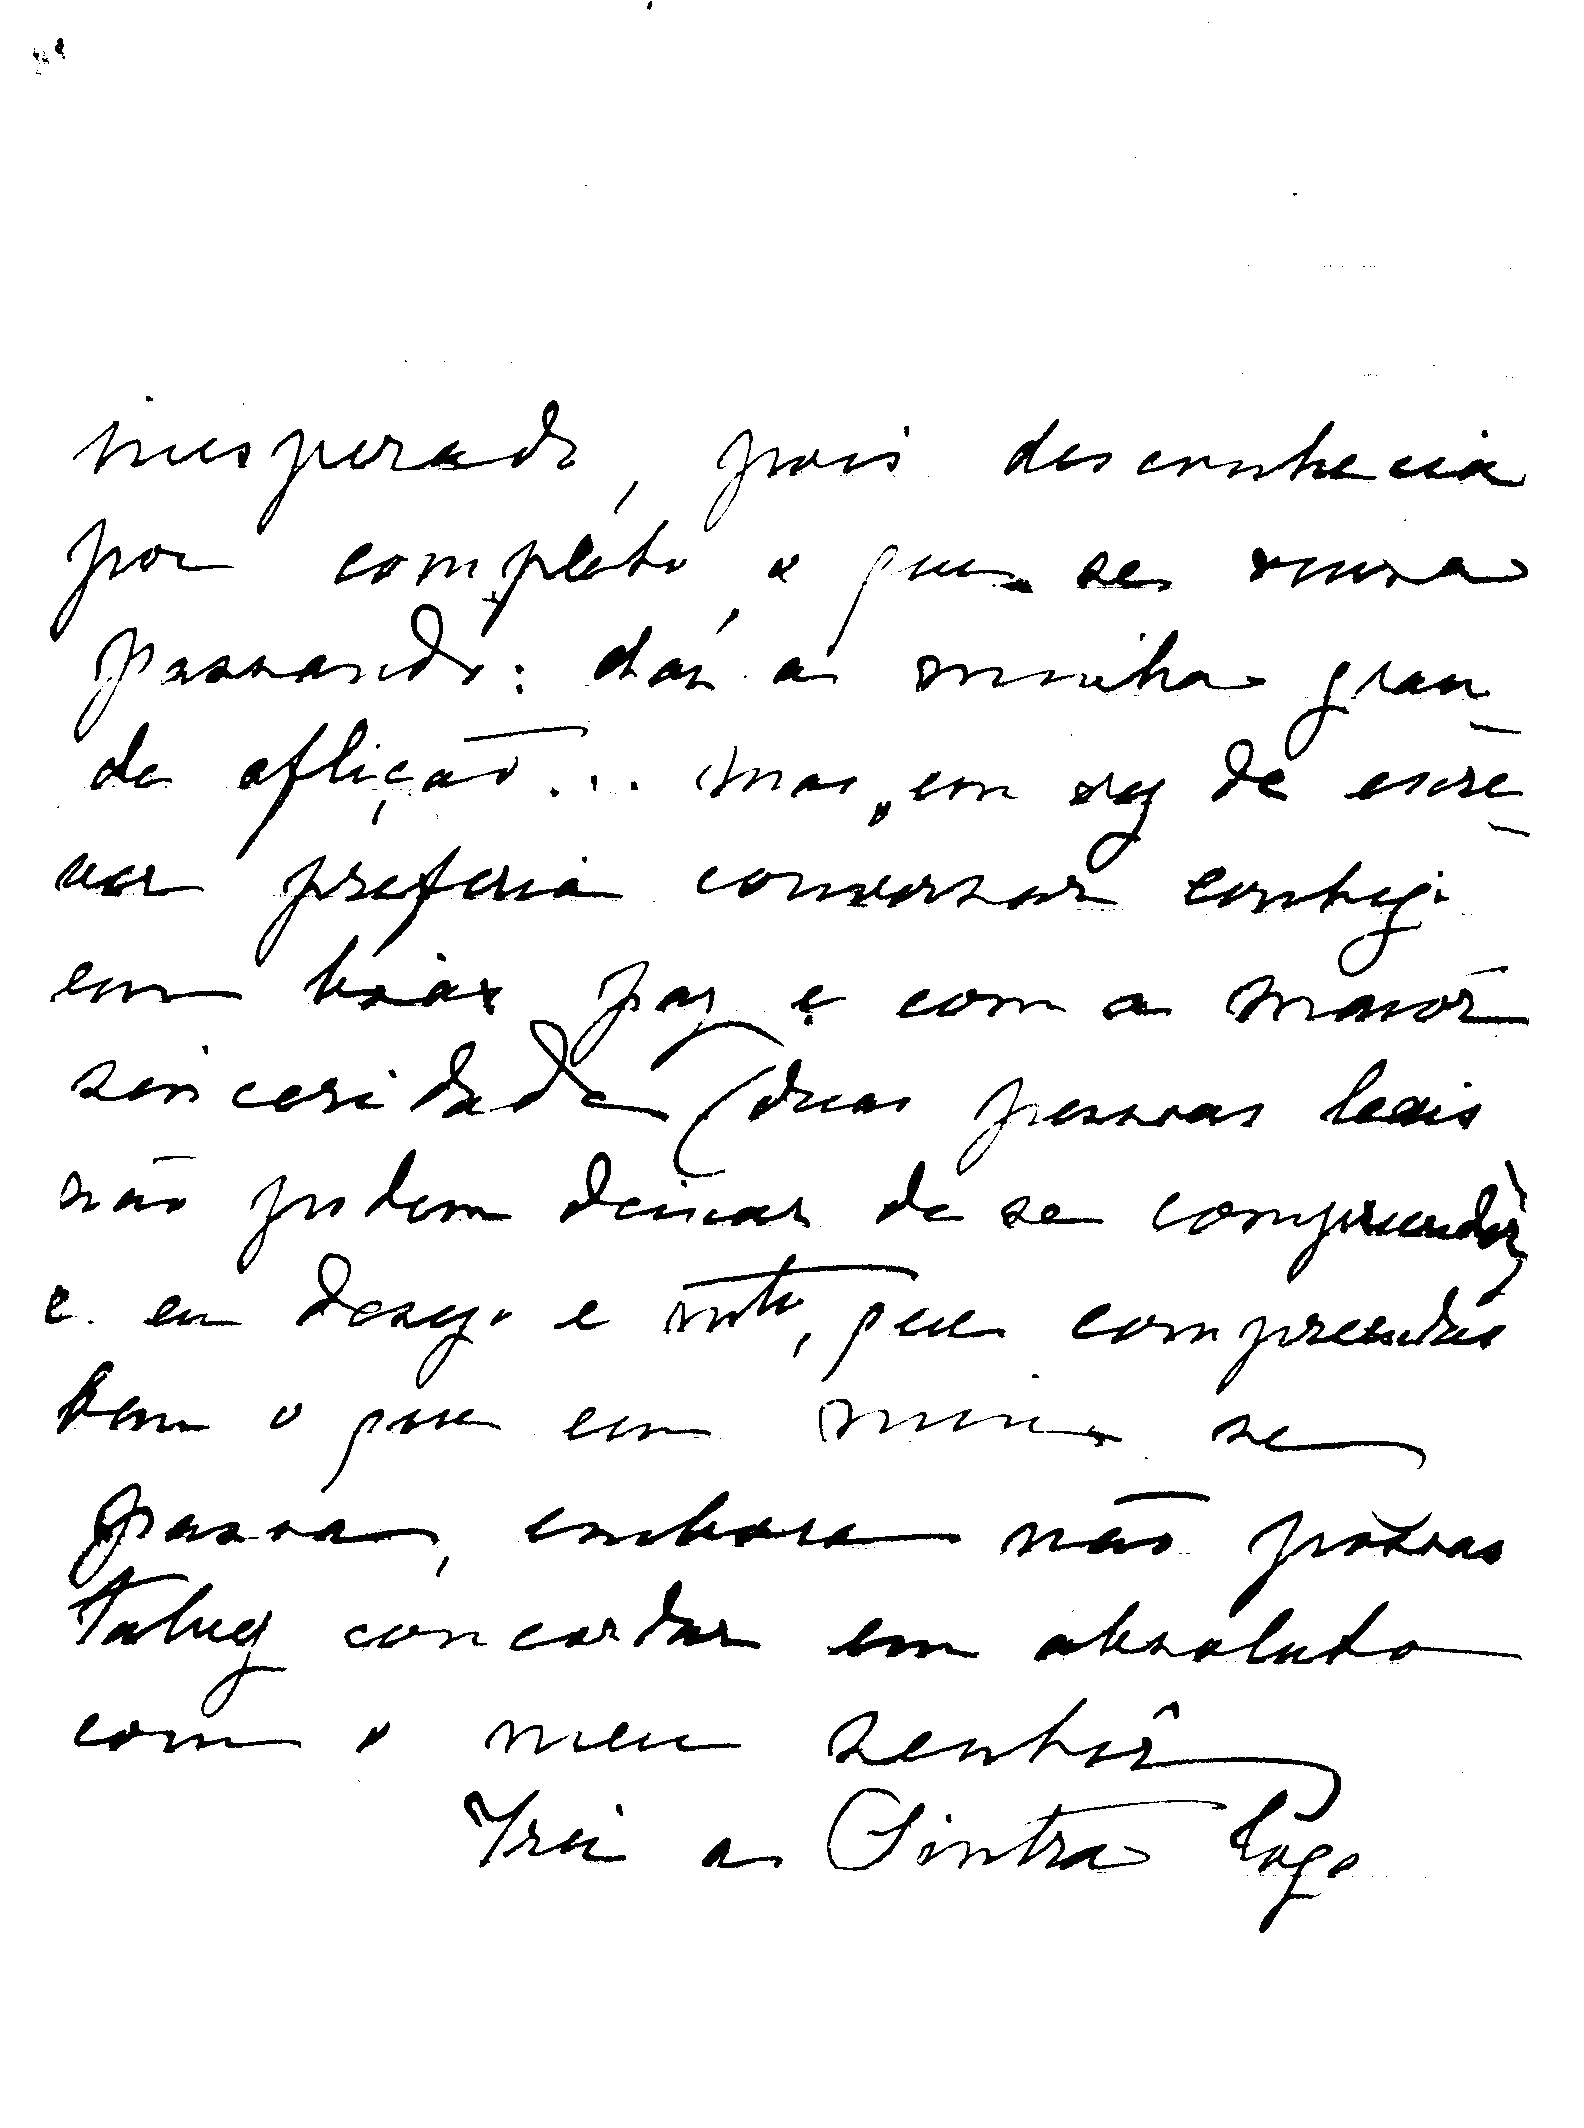 inesperado, pois desconhecia
por complèto o que se
passando: daí a minha gran-
de aflição... mas, em vez de escre-
ver preferia conversar contigo
em bôa paz e com a maiór
sinceridade (duas pessoas leais
não podem deixar de se comprender)
e eu desejo e mto, que comprendas
bem o que em mim se
passa, embora não póssas
talvez concordar em absoluto
com o meu sentir
Irei a Sintra logo